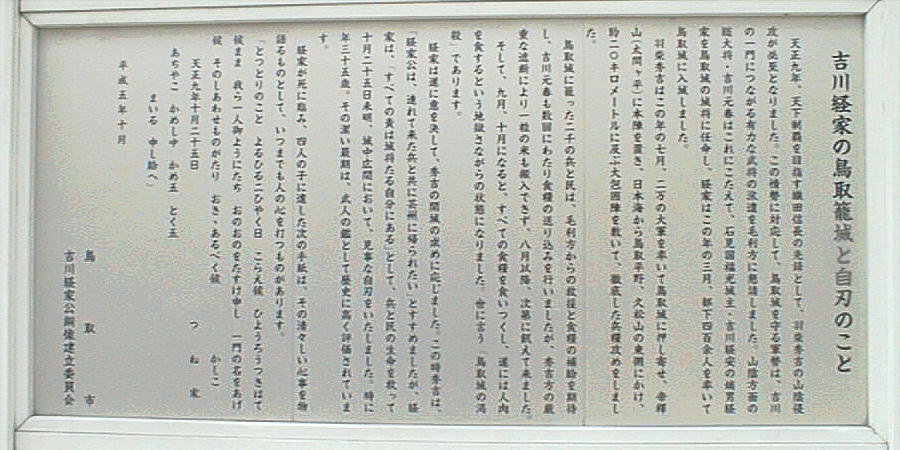 吉川経家の鳥取籠城と自刃のこと
天正九年、天下制覇を目指す織田信長の先鋒として、羽柴秀吉の山陰侵
攻が必至となりました。この情勢に対応して、鳥取城を守る軍勢は、吉川
の一門につながる有力な武将の派遣を毛利方に懇請しました。山陰方面の
総大将・吉川元春はこれにこたえて、石見国福光城主・吉川経安の嫡男経
家を鳥取城の城将に任命し、経家はこの年の三月、部下四百余人を率いて
鳥取城に入城しました。
羽柴秀吉はこの年の七月、二万の大軍を率いて鳥取城に押し寄せ、帝釈
山(太閤ヶ平)に本陣を置き、日本海から鳥取平野、久松山の東側にかけ、
約二〇キロメートルに及ぶ大包囲陣を敷いて、徹底した兵糧攻めをしまし
た。
鳥取城に籠った二千の兵と民は、毛利方からの救援と食糧の補給を期待
し、吉川元春も数回にわたり食糧の送り込みを行いましたが、秀吉方の厳
重な遮断により一粒の米も搬入できず、八月以降、次第に飢えて来ました。
そして、九月、十月になると、すべての食糧を食いつくし、遂には人肉
を食するという地獄さながらの状態になりました。世に言う「鳥取城の渇
殺」であります。
経家は遂に意を決して、秀吉の開城の求めに応じました。この時秀吉は、
「経家公は、連れて来た兵と共に芸州に帰られたい」とすすめましたが、経
家は、「すべての責は城将たる自分にある」として、兵と民の生命を救って
十月二十五日未明、城中広間において、見事な自刃をいたしました。時に
年三十五歳。その潔い最期は、武人の鑑として歴史に高く評価されていま
す。
経家が死に臨み、四人の子に遺した次の手紙は、その清々しい心事を物
語るものとして、いつまでも人の心を打つものがあります。
「とつとりのこと よるひる二ひやく日 こらえ候 ひようろうつきはて
候まま 我ら一人御ようにたち おのおのをたすけ申し 一門の名をあげ
候 そのしあわせものがたり おきゝあるべく候 かしこ
天正九年十月二十五日 つね家
あちやこ かめしゆ かめ五 とく五
まいる 申し給へ」
平成五年十月
鳥取市
吉川経家公銅像建立委員会